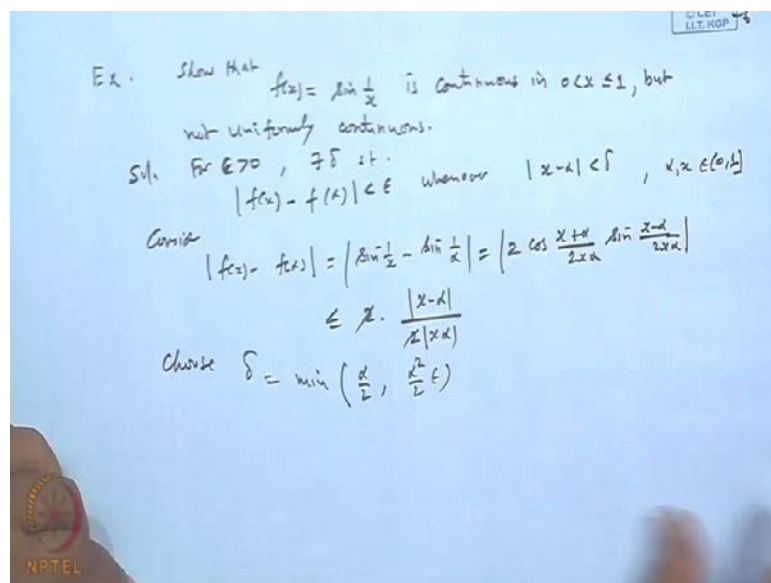 © CET
I.I.T. KGP
Ex. Show that f(x) = sin 1/x is continuous in 0<x≤1, but
not uniformly continuous.
Sol. For ε>0, ∃ δ st.
|f(x) - f(α)| < ε whenever |x-α| < δ, α, x ∈ (0,1]
Consider
|f(x) - f(α)| = |sin 1/x - sin 1/α| = |2 cos (x+α)/(2xα) sin (x-α)/(2xα)|
≤ 2. |x-α|/(2|xα|)
Choose δ = min (α/2, α²/2 ε)
NPTEL